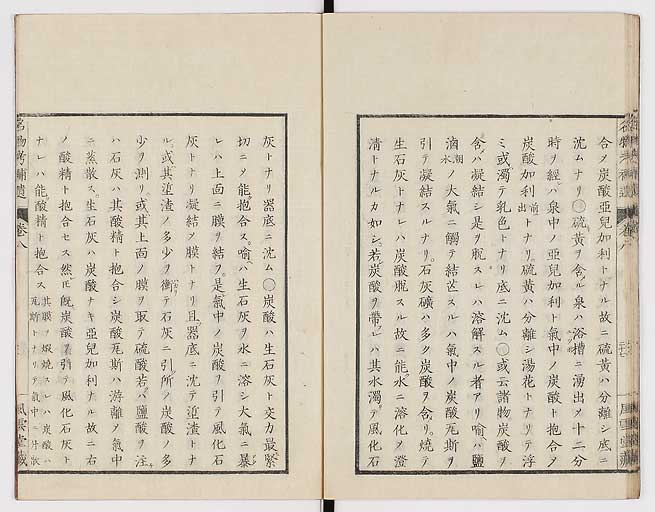 合メ炭酸亞兒加利トナル故ニ硫黄ハ分離シ底ニ
沈ムナリ○硫黄ヲ含ル泉ハ浴槽ニ湧出メ十二分
時ヲ經ハ泉中ノ亞兒加利ト氣中ノ炭酸ト抱合ヲ
炭酸加利前出トナリ硫黄ハ分離シ湯花トナリテ浮
ミ或濁テ乳色トナリ底ニ沈ム○或云諸物炭酸ヲ
含ハ凝結シ是ヲ脱スレハ溶解スル者アリ喻ハ鹽
滷潮水ノ大氣ニ觸テ結スルハ氣中ノ炭酸瓦斯ヲ
引テ凝結スルナリ石灰礦ハ多ク炭酸ヲ含リ燒テ
生石灰トナレハ炭酸脱スル故ニ能水ニ溶化メ澄
清トナルカ如シ若炭酸ヲ帶レハ其水濁テ風化石
灰トナリ器底ニ沈ム○炭酸ハ生石灰ト交力最緊
切ニメ能抱合ス喻ハ生石灰ヲ水ニ溶シ大氣ニ暴
レハ上面ニ膜ヲ結フ是氣中ノ炭酸ヲ引テ風化石
灰トナリ凝結メ膜トナリ且器底ニ沈テ渣トナ
ル或其渣ノ多少ヲ衡テ石灰ニ引所ノ炭酸ノ多
少ヲ測リ或其上面ノ膜ヲ取テ硫酸若ハ鹽酸ヲ注
ハ石灰ハ其酸精ト抱合シ炭酸瓦斯ハ游離メ氣中
ニ蒸散ス生石灰ハ炭酸ナキ亞兒加利ナル故ニ右
ノ酸精ト抱合セス然ト既炭酸ヲ引テ風化石灰ト
ナレハ能酸精ト抱合ス其膜ヲ煅燒スレハ炭酸ハ
瓦斯トナリテ氣中ニ升散
名物考補遺
卷八
風雲堂藏